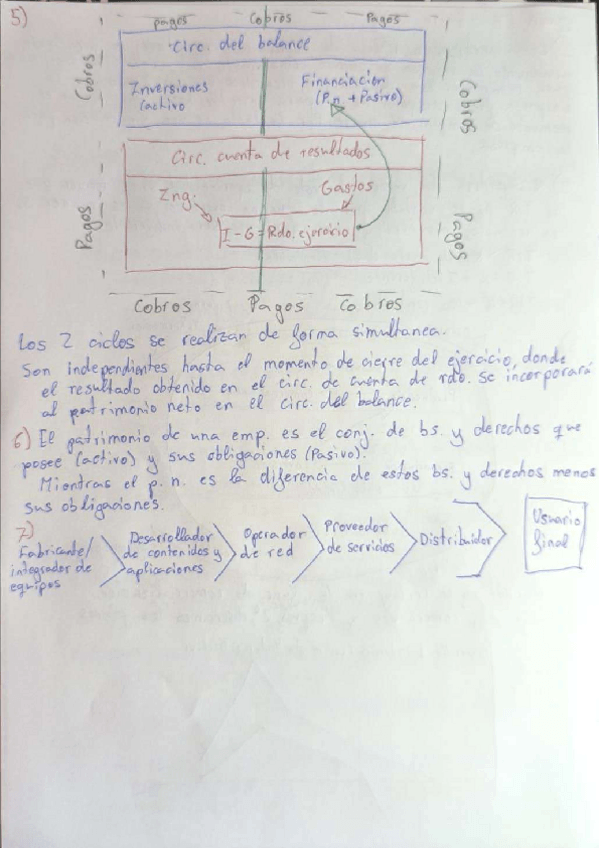 5)
pagos Cobros Pagos
Circ. del balance
Cobros
Inversiones
(activo)
Financiación
(P.n + Pasivo)
Cobros
Circ. cuenta de resultados
Ing.
Gastos
Pagos
I - G = Rdo. ejercicio
Pagos
Cobros Pagos Cobros
Los 2 ciclos se realizan de forma simultanea.
Son independientes hasta el momento de cierre del ejercicio, donde
el resultado obtenido en el circ. de cuenta de rdo. se incorporará
al patrimonio neto en el circ. del balance.
6) El patrimonio de una emp. es el conj. de bs. y derechos que
posee (activo) y sus obligaciones (Pasivo).
Mientras el p. n. es la diferencia de estos bs. y derechos menos
sus obligaciones.
7)
Fabricante/
integrador de
equipos
Desarrollador
de contenidos y
aplicaciones
Operador
de red
Proveedor
de servicios
Distribuidor
Usuario
final